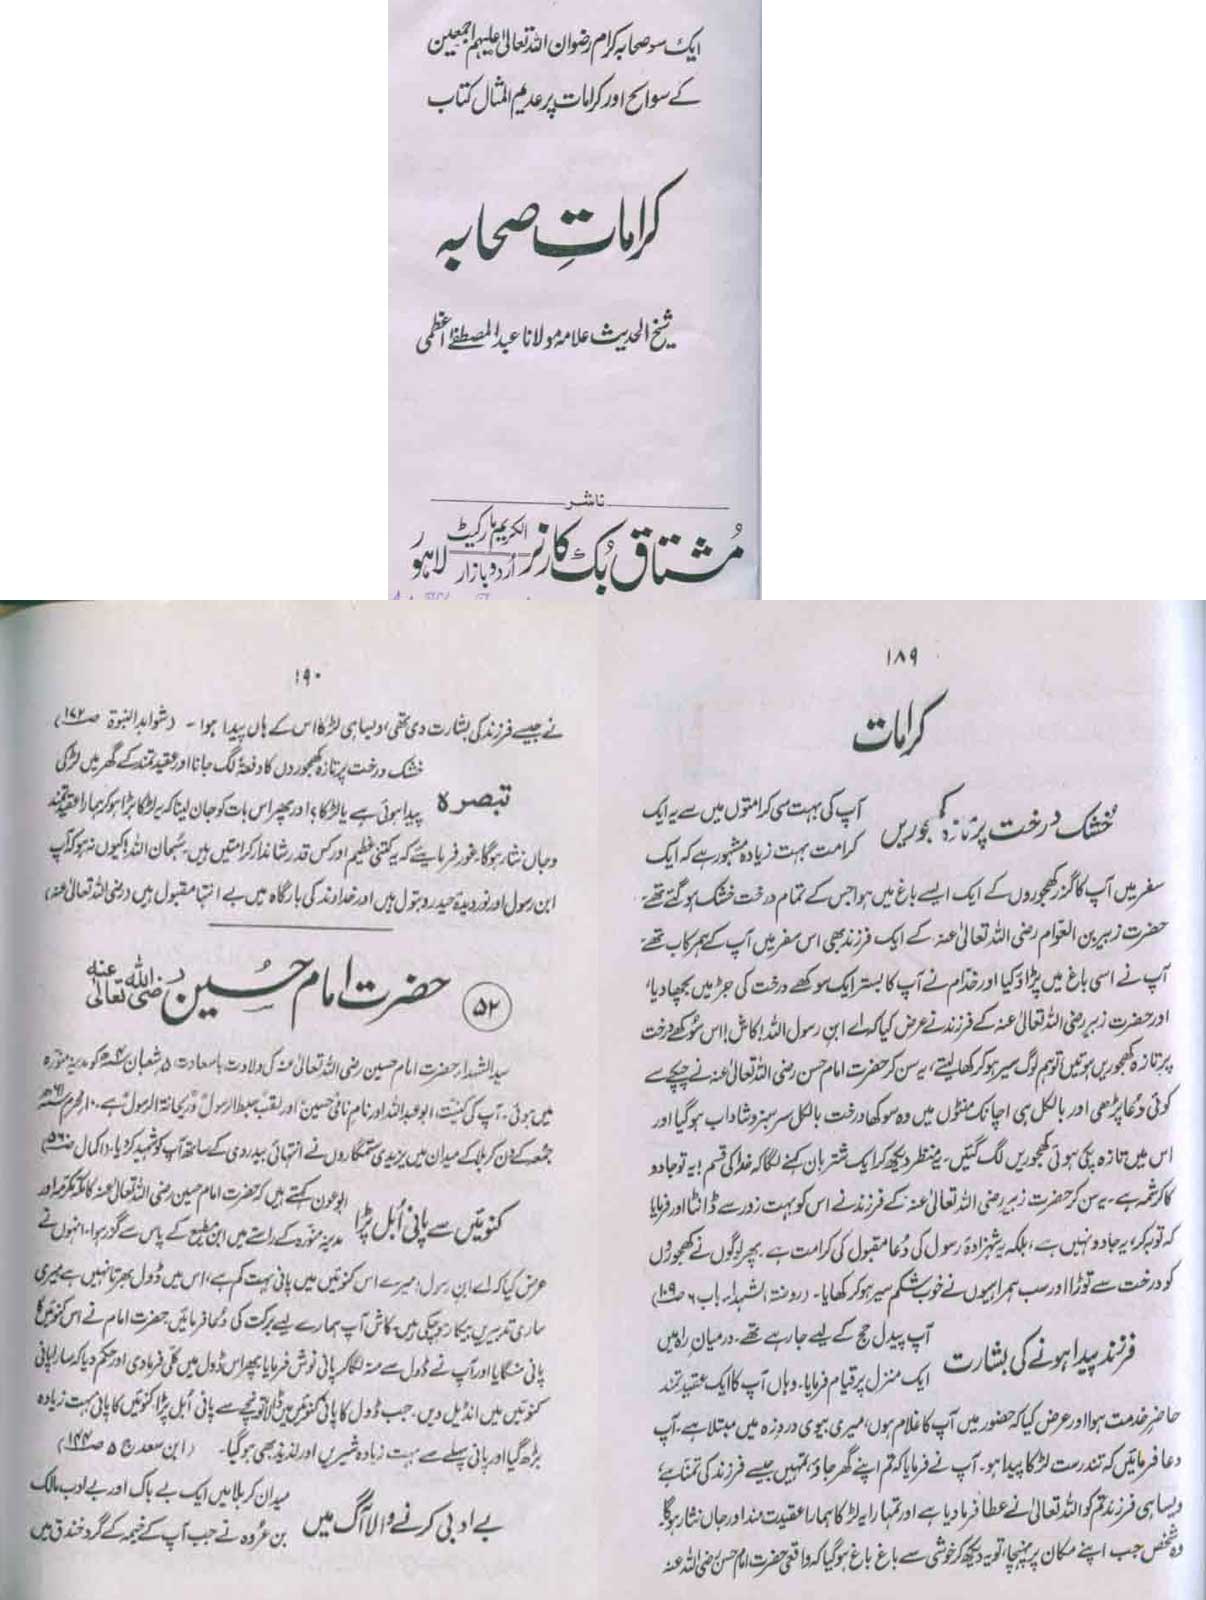 ایک سو صحابہ کرام رضوان اللہ تعالیٰ علیہم اجمعین
کے سوانح اور کرامات پر عدیم المثال کتاب
کراماتِ صحابہ
شیخ الحدیث علامہ مولانا عبدالمصطفےٰ اعظمی
ناشر
مُشتاق بُک کارنر الکریم مارکیٹ اُردو بازار لاہور
۱۸۹
کرامات
خشک درخت پر تازہ کھجوریں
آپ کی بہت سی کرامتوں میں سے یہ ایک
کرامت بہت زیادہ مشہور ہے کہ ایک
سفر میں آپ کا گزر کھجوروں کے ایک ایسے باغ میں ہوا جس کے تمام درخت خشک ہو گئے تھے
حضرت زبیر بن العوام رضی اللہ تعالیٰ عنہ کے ایک فرزند بھی اس سفر میں آپ کے ہمرکاب تھے
آپ نے اسی باغ میں پڑاؤ کیا اور خدام نے آپ کا بستر ایک سوکھے درخت کی جڑ میں بچھا دیا،
اور حضرت زبیر رضی اللہ تعالیٰ عنہ کے فرزند نے عرض کیا کہ اے ابن رسول اللہ! کاش! اس سوکھے درخت
پر تازہ کھجوریں ہوتیں تو ہم لوگ سیر ہو کر کھا لیتے، یہ سن کر حضرت امام حسن رضی اللہ تعالیٰ عنہ نے چپکے سے
کوئی دُعا پڑھی اور بالکل ہی اچانک منٹوں میں وہ سوکھا درخت بالکل سرسبز و شاداب ہو گیا اور
اس میں تازہ پکی ہوئی کھجوریں لگ گئیں۔ یہ منظر دیکھ کر ایک شتربان کہنے لگا کہ خدا کی قسم! یہ تو جادو
کا کرشمہ ہے۔ یہ سن کر حضرت زبیر رضی اللہ تعالیٰ عنہ کے فرزند نے اس کو بہت زور سے ڈانٹا اور فرمایا
کہ توبہ کر، یہ جادو نہیں ہے، بلکہ یہ شہزادۂ رسول کی دُعا مقبول کی کرامت ہے۔ پھر لوگوں نے کھجوروں
کو درخت سے توڑا اور سب ہمراہیوں نے خوب شکم سیر ہو کر کھایا۔ (روضۃ الشہداء باب ۶ ص ۱۰۹)
فرزند پیدا ہونے کی بشارت
آپ پیدل حج کے لیے جا رہے تھے۔ درمیان راہ میں
ایک منزل پر قیام فرمایا۔ وہاں آپ کا ایک عقیدتمند
حاضر خدمت ہوا اور عرض کیا کہ حضور میں آپ کا غلام ہوں، میری بیوی دردزہ میں مبتلا ہے، آپ
دعا فرمائیں کہ تندرست لڑکا پیدا ہو۔ آپ نے فرمایا کہ تم اپنے گھر جاؤ، تمہیں جیسے فرزند کی تمنا ہے
ویسا ہی فرزند تم کو اللہ تعالیٰ نے عطا فرما دیا ہے اور تمہارا یہ لڑکا ہمارا عقیدت مند اور جاں نثار ہوگا۔
وہ شخص جب اپنے مکان پر پہنچا، تو یہ دیکھ کر خوشی سے باغ باغ ہو گیا کہ واقعی حضرت امام حسن رضی اللہ عنہ
۱۹۰
نے جیسے فرزند کی بشارت دی تھی، ویسا ہی لڑکا اس کے ہاں پیدا ہوا۔ (شواہد النبوۃ ص ۱۷۲)
تبصرہ
خشک درخت پر تازہ کھجوروں کا دفعۃً لگ جانا اور عقیدتمند کے گھر میں لڑکی
پیدا ہوئی ہے یا لڑکا؟ اور پھر اس بات کو جان لینا کہ یہ لڑکا بڑا ہو کر ہمارا عقیدتمند
و جاں نثار ہوگا۔ غور فرمایئے کہ یہ کتنی عظیم اور کس قدر شاندار کرامتیں ہیں۔ سُبحان اللہ! کیوں نہ ہو کہ آپ
ابن رسول اور نور دیدۂ حیدر و بتول ہیں اور خداوند کی بارگاہ میں بے انتہا مقبول ہیں (رضی اللہ تعالیٰ عنہ)
۵۲ حضرت امام حُسین رضی اللہ تعالیٰ عنہ
سیدالشہداء حضرت امام حسین رضی اللہ تعالیٰ عنہ کی ولادت باسعادت ۵ شعبان ۴ھ کو مدینہ منورہ
میں ہوئی۔ آپ کی کنیت، ابوعبداللہ اور نام نامی حسین اور لقب سبط الرسول و ریحانۃ الرسول ہے۔ ۱۰ محرم ۶۱ھ
جمعہ کے دن کربلا کے میدان میں یزیدی ستمگاروں نے انتہائی بیدردی کے ساتھ آپ کو شہید کر دیا۔ (اکمال ص ۵۶)
کنوئیں سے پانی اُبل پڑا
ابوعون کہتے ہیں کہ حضرت امام حسین رضی اللہ تعالیٰ عنہ کا مکہ مکرمہ اور
مدینہ منورہ کے راستے میں ابن مطیع کے پاس سے گزر ہوا۔ انہوں نے
عرض کیا کہ اے ابن رسول، میرے اس کنوئیں میں پانی بہت کم ہے، اس میں ڈول بھرتا نہیں ہے میری
ساری تدبیریں بیکار ہو چکی ہیں۔ کاش آپ ہمارے لیے برکت کی دُعا فرمائیں۔ حضرت امام نے اس کنوئیں کا
پانی منگایا اور آپ نے ڈول سے منہ لگا کر پانی نوش فرمایا پھر اس ڈول میں کلی فرما دی اور حکم دیا کہ سارا پانی
کنوئیں میں انڈیل دیں۔ جب ڈول کا پانی کنوئیں میں ڈالا تو نیچے سے پانی اُبل پڑا۔ کنوئیں کا پانی بہت زیادہ
بڑھ گیا اور پانی پہلے سے بہت زیادہ شیریں اور لذیذ بھی ہو گیا۔ (ابن سعد ج ۵ ص ۱۴۴)
بے ادبی کرنے والا آگ میں
میدان کربلا میں ایک بے باک اور بے ادب مالک
بن عروہ نے جب آپ کے خیمہ کے گرد خندق میں